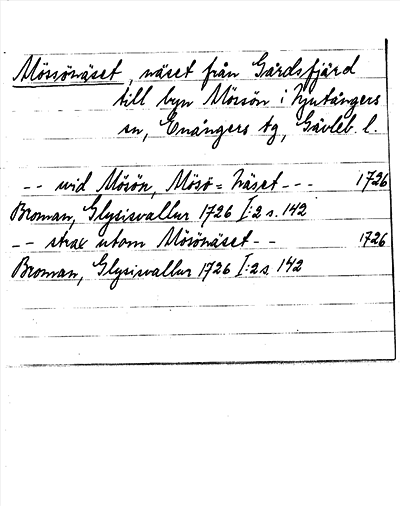 Mössönäset, näset från Gårdsfjärd
till byn Mössön i Njutångers
sn, Enångers tg, Gävleb. l.
-- wid Mösön, Mösö=Näset --- 1726
Broman, Glysisvallur 1726 I:2 s. 142
-- strax utom Mösönäset -- 1726
Broman, Glysisvallur 1726 I:2 s 142